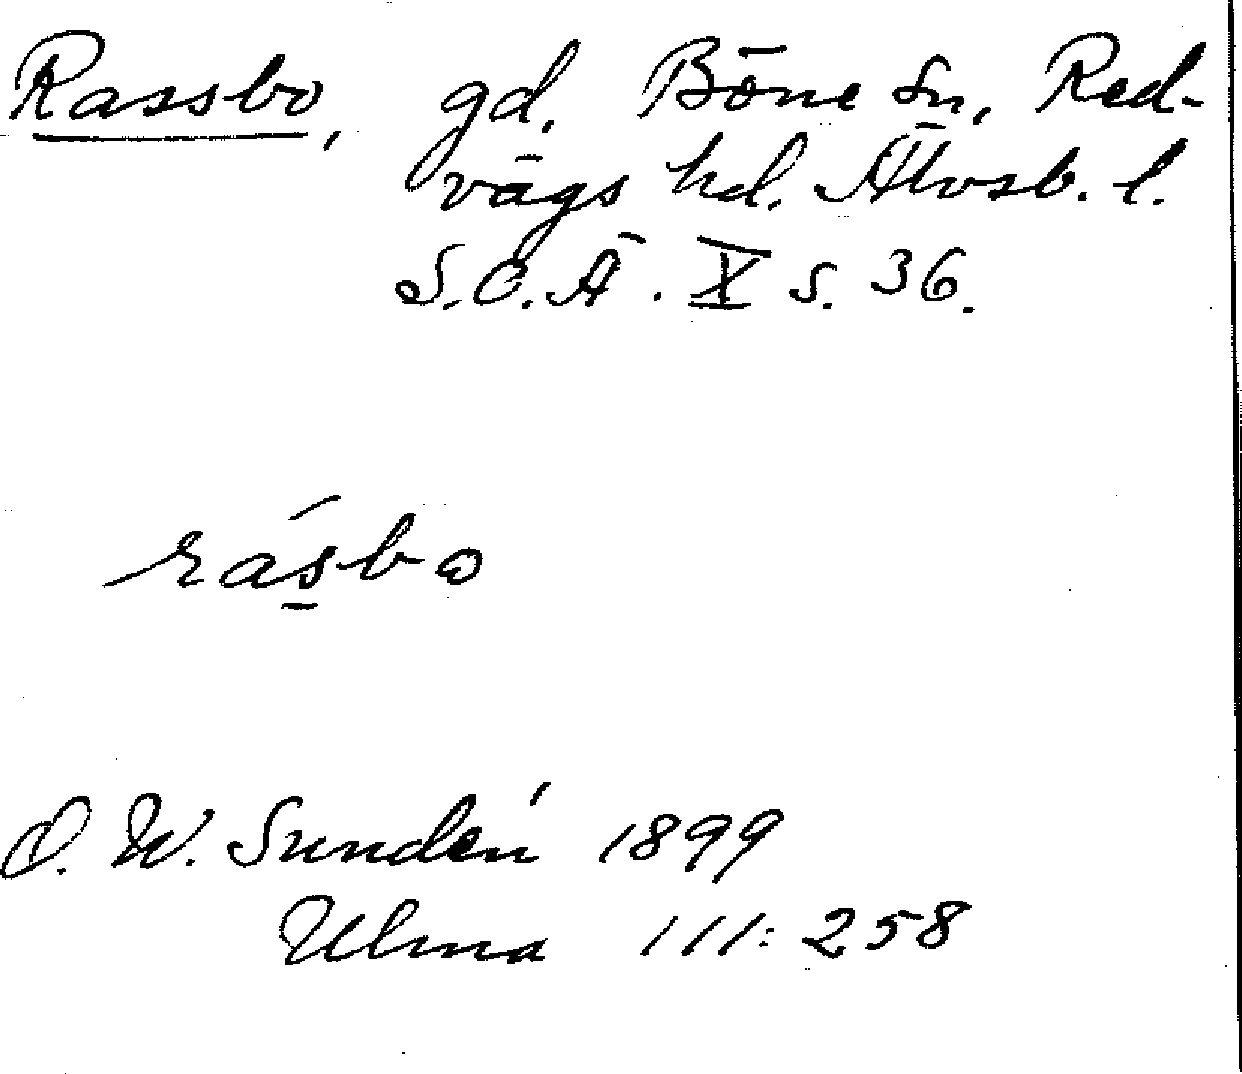 Rassbo, gd, Böne sn, Red-
vägs hd. Älvsb. l.
S.O.Ä. X s. 36.
rás̲bo
D. W. Sundén 1899
Ulma 111: 258